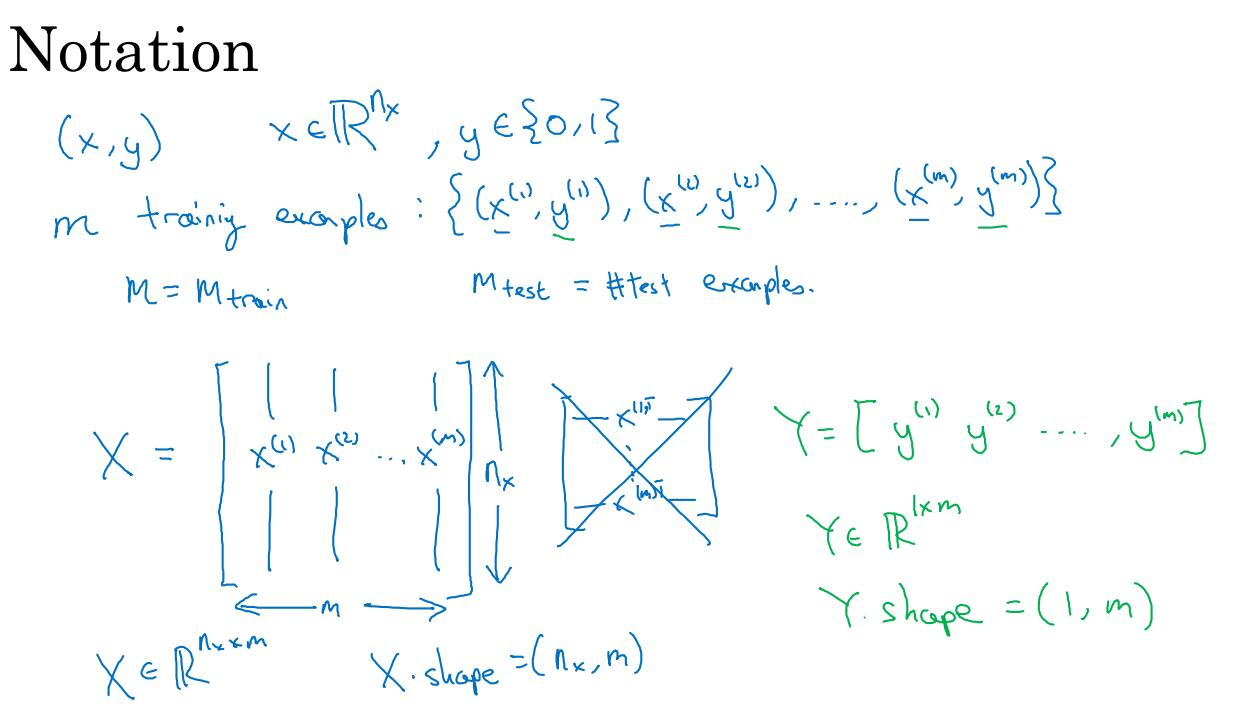 Notation
(x,y) x ∈ ℝ^{n_x}, y ∈ {0,1}
m trainiy examples : {(x^{(1)}, y^{(1)}), (x^{(2)}, y^{(2)}), ...., (x^{(m)}, y^{(m)})}
M = M_{train} M_{test} = #test examples.
X = [ x^{(1)} x^{(2)} ... x^{(m)} ] n_x
m
x^{(1)T}
x^{(m)T}
Y = [ y^{(1)} y^{(2)} .... , y^{(m)} ]
Y ∈ ℝ^{1×m}
Y.shape = (1, m)
X ∈ ℝ^{n_x × m} X.shape = (n_x, m)